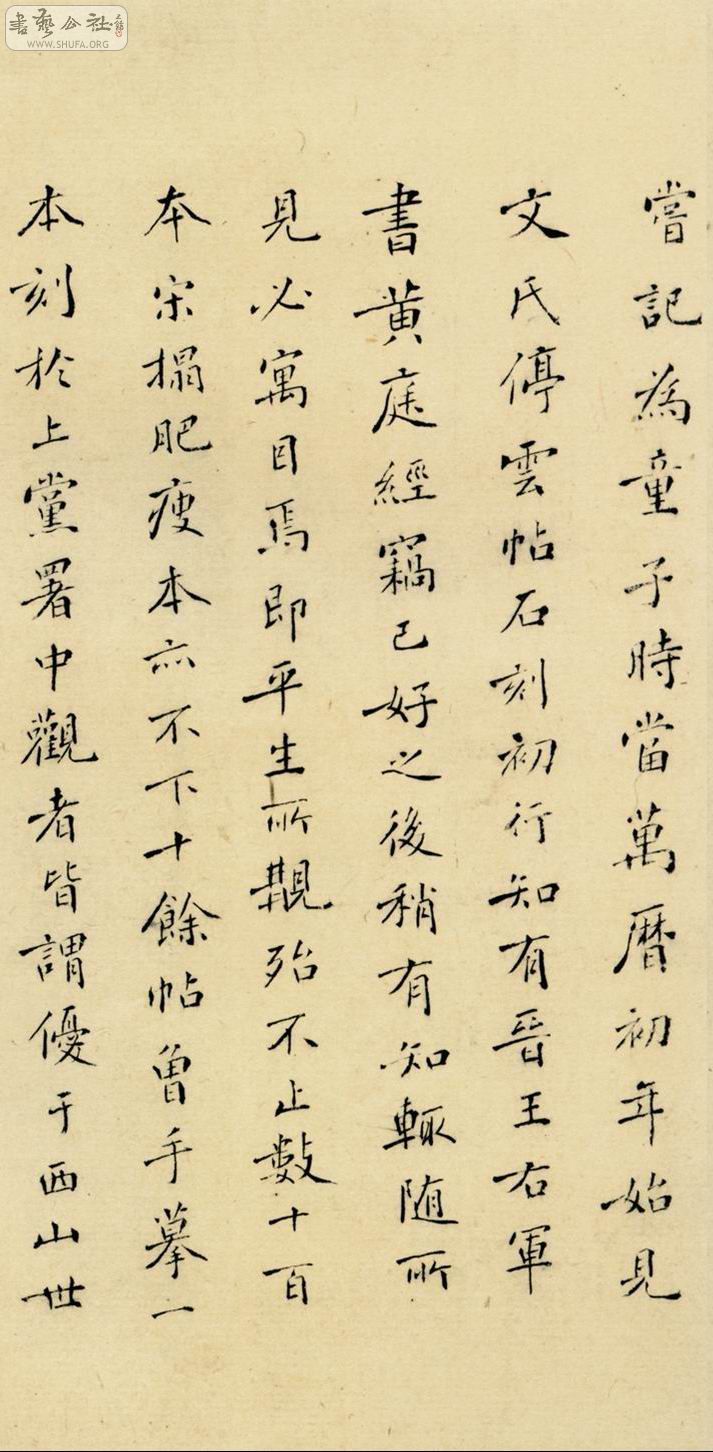 嘗記為童子時當萬曆初年始見
文氏停雲帖石刻初行知有晉王右軍
書黃庭經竊已好之後稍有知輒随所
見必寓目焉即平生所覩殆不止數十百
本宋搨肥瘦本亦不下十餘帖曾手摹一
本刻於上黨署中觀者皆謂優于西山世
書藝公社
WWW.SHUFA.ORG